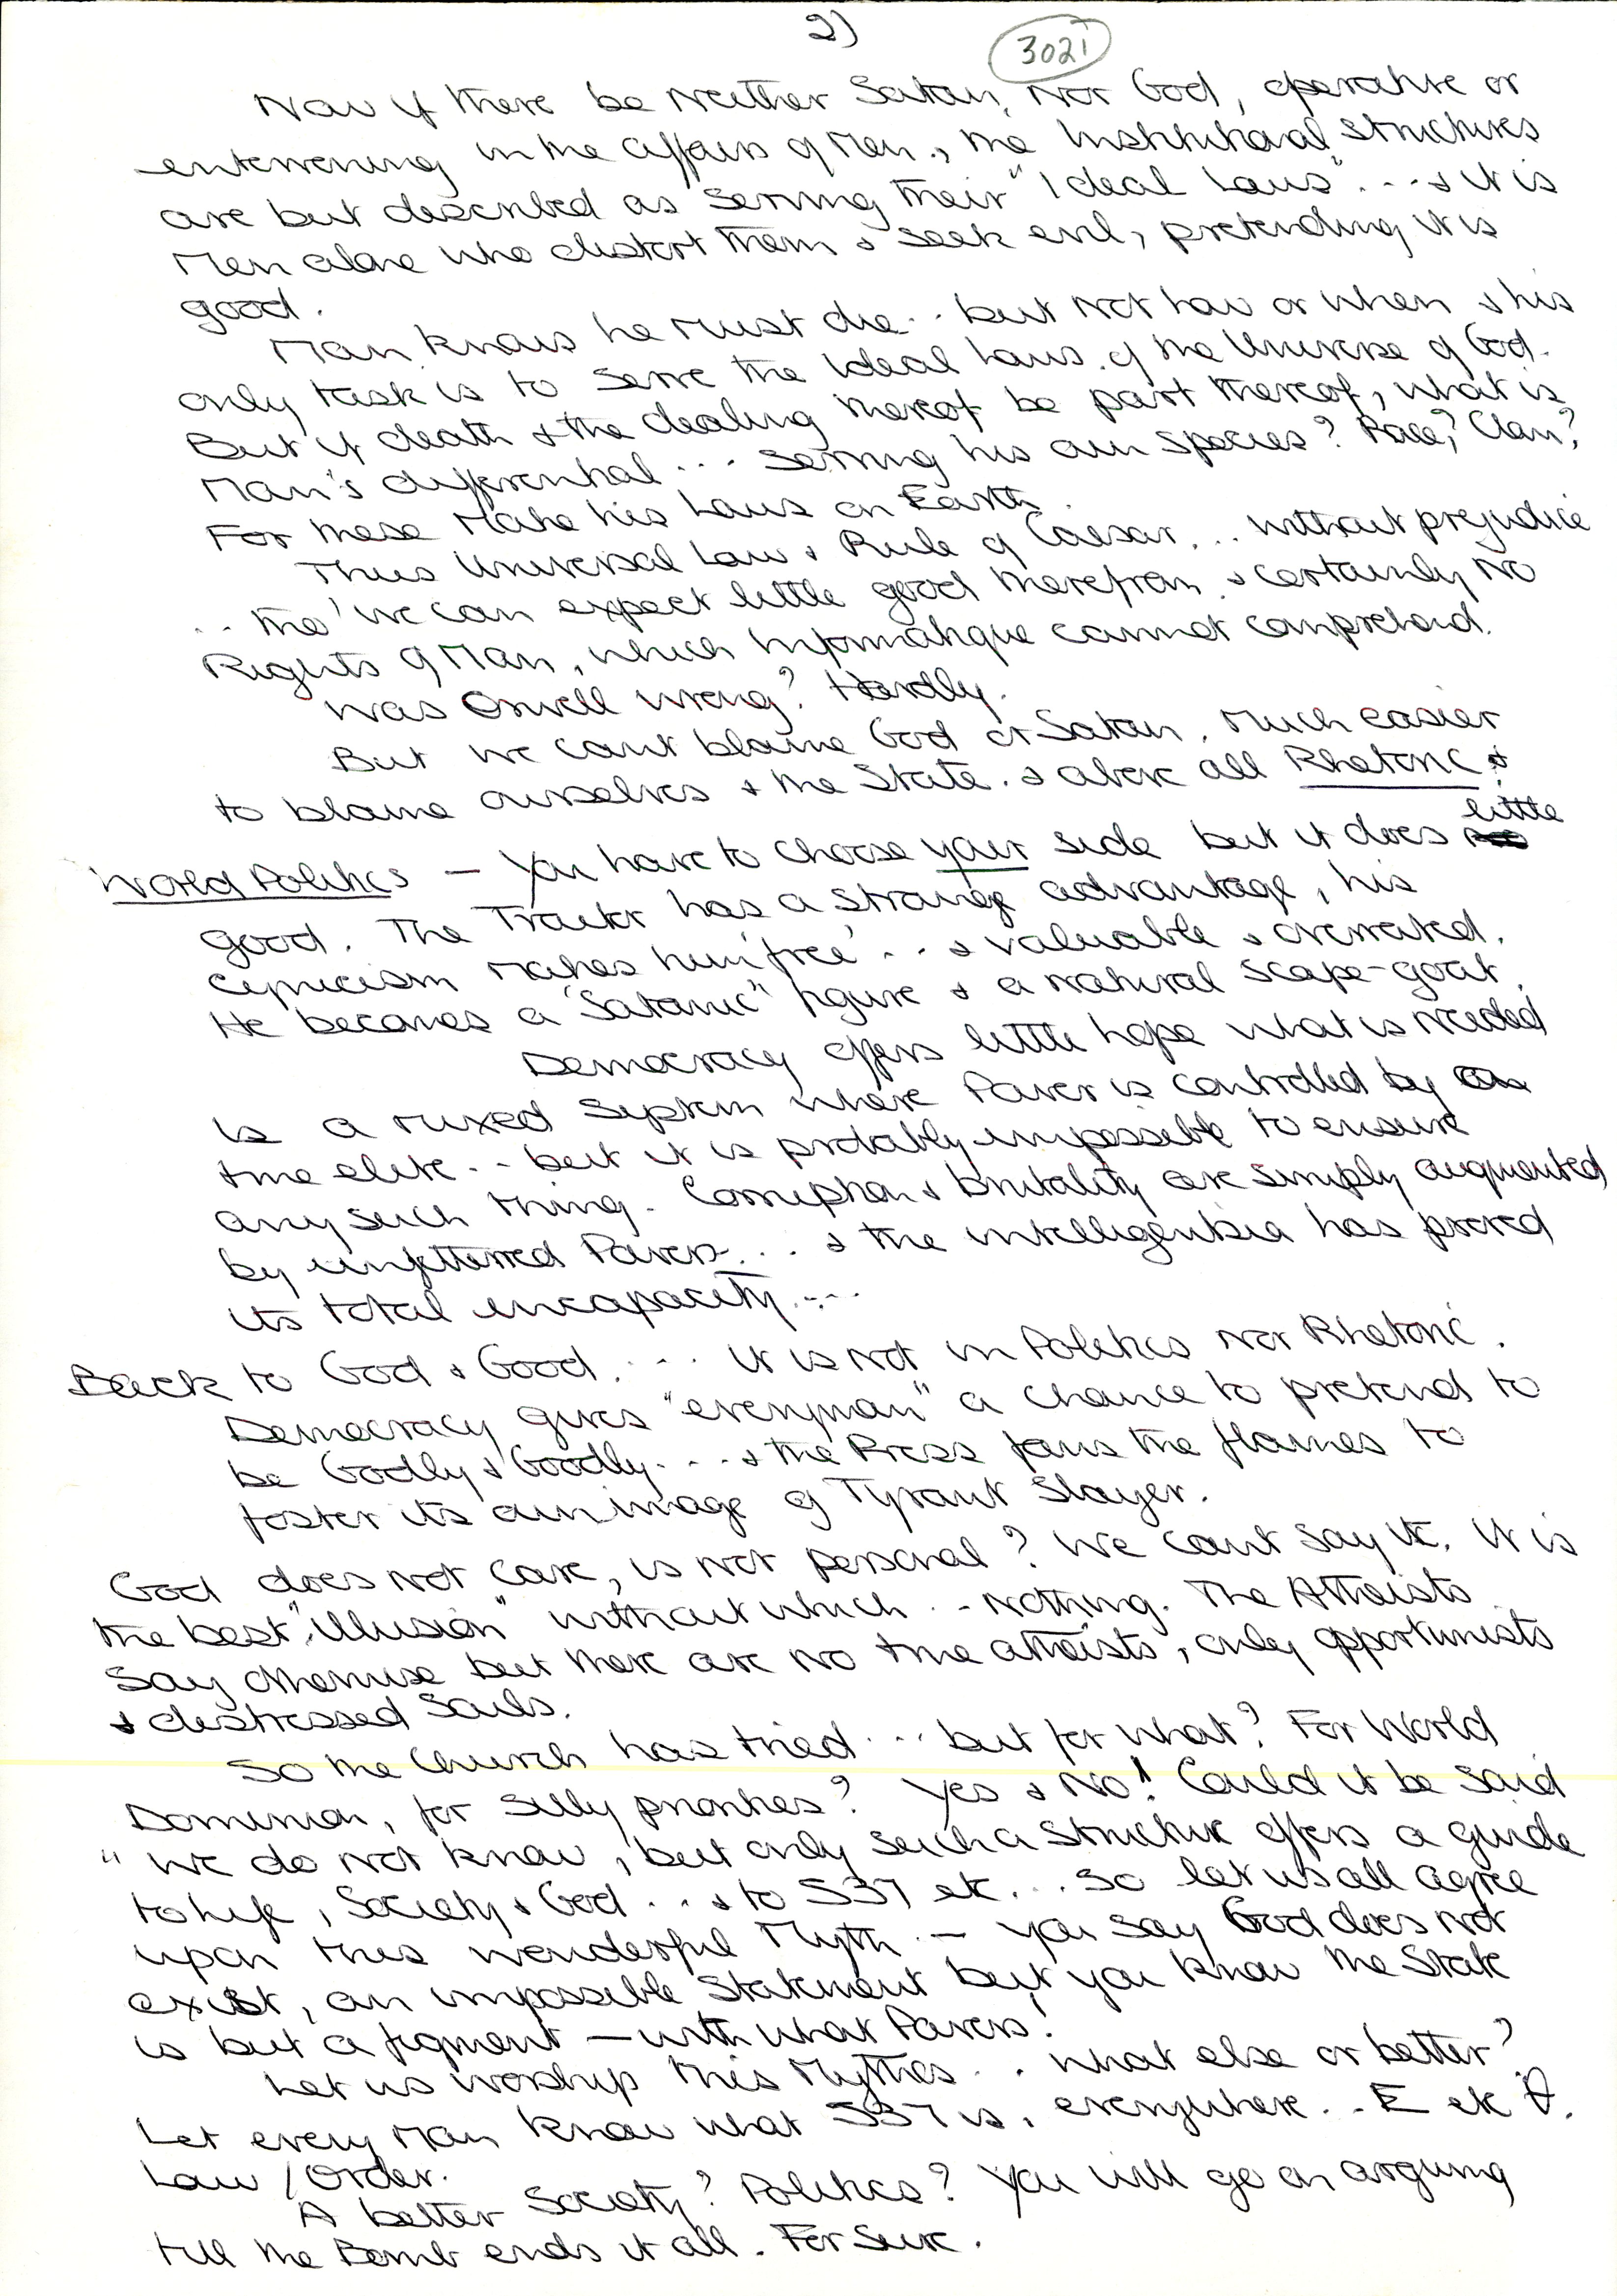 2)
302T
Now if there be Neither Satan, Nor God, operative or
entervening in the affairs of Men., the Institutional structures
are but described as serving their "Ideal Laws"... & it is
Men alone who distort them & seek evil, pretending it is
good.
Man knows he must die.. but not how or when & his
only task is to serve the Ideal Laws of the Universe of God.
But if death & the dealing thereof be part thereof, what is
Man's differential... serving his own species? Race? Clan?
For these Make his Laws on Earth.
Thus Universal Law & Rule of Caesar... without prejudice
.. tho' we can expect little good therefrom & certainly No
Rights of Man, which Informatique cannot comprehend.
Was Orwell wrong? Hardly.
But we can't blame God or Satan, Much easier
to blame ourselves & the State. & above all Rhetoric &
World Politics — You have to choose your side but it does little
good. The Traitor has a strange advantage, his
cynicism makes him 'free'... & valuable & overrated.
He becomes a "Satanic" figure & a natural scape-goat.
Democracy offers little hope what is needed
is a mixed system where Power is controlled by
true elite... but it is probably impossible to ensure
any such thing. Corruption & brutality are simply augmented
by unfettered Powers... & the intelligentsia has proved
its total incapacity....
Back to God & Good... it is not in Politics nor Rhetoric.
Democracy gives "everyman" a chance to pretend to
be Godly & Goodly... & the Press fans the flames to
foster its own image of Tyrant Slayer.
God does not care, is not personal? We can't say it. It is
the best "illusion" without which .. Nothing. The Atheists
say otherwise but there are no true atheists, only opportunists
& distressed souls.
So the Church has tried... but for what? For World
Dominion, for silly priorities? Yes & No! Could it be said
" We do not know, but only such a structure offers a guide
to Life, Society & God... & to 537 etc... so let us all agree
upon this wonderful Myth — You say God does not
exist, an impossible statement but you know the State
is but a figment — with what Powers!
Let us worship this Mythos.. what else or better?
Let every Man know what 537 is, everywhere.. E etc
Law / Order.
A better Society? Politics? You will go on arguing
till the Bomb ends it all. For Sure.